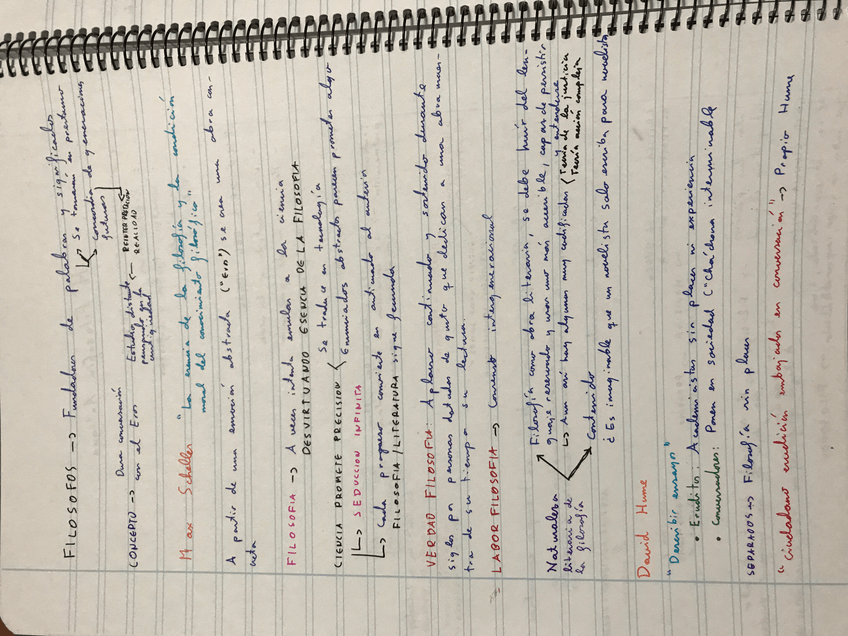 FILOSOFOS → Fundador de palabras y significados
↳ Se tomarán en préstamo
concordia de generaciones
futuras
CONCEPTO → Dura conversación
con el Eros
Estudiar distante ←
porque ya fue
antigüedad
REGISTER PRECISION
REALIDAD
Max Scheller "La esencia de la filosofía y la condición
moral del conocimiento filosófico"
A partir de una emoción abstracta ("Eros") se crea una obra con-
creta
FILOSOFIA → A veces intenta emular a la ciencia
DESVIRTUANDO ESENCIA DE LA FILOSOFIA
CIENCIA PROMETE PRECISION < Se traduce en tecnología
Enunciados abstractos parecen prometer algo
↳ SEDUCCION INFINITA
↳ Cada progreso convierte en anticuado al anterior
FILOSOFIA/LITERATURA sigue fecunda
VERDAD FILOSOFIA: Aplauso continuado y sostenido durante
siglos por personas dotadas de gusto que dedican a una obra mues-
tra de su tiempo a su lectura.
LABOR FILOSOFIA → Consenso intergeneracional
Naturaleza
literaria de
la filosofía
Filosofía como obra literaria, se debe huir del len-
guaje reservado y usar uno más accesible, capaz de persistir
y entenderse
↳ Aun así hay algunos muy codificados (Teoría de la justicia
Teoría acción compleja
Contenido
¿Es imaginable que un novelista solo escriba para novelistas
David Hume
"Describir ensayo"
• Eruditos: Academistas sin placer ni experiencia
• Conversadores: Ponen en sociedad ("Cháchara interminable
SEPARADOS → Filosofía sin placer
"ciudadano erudición embajador en conversación" → Propio Hume